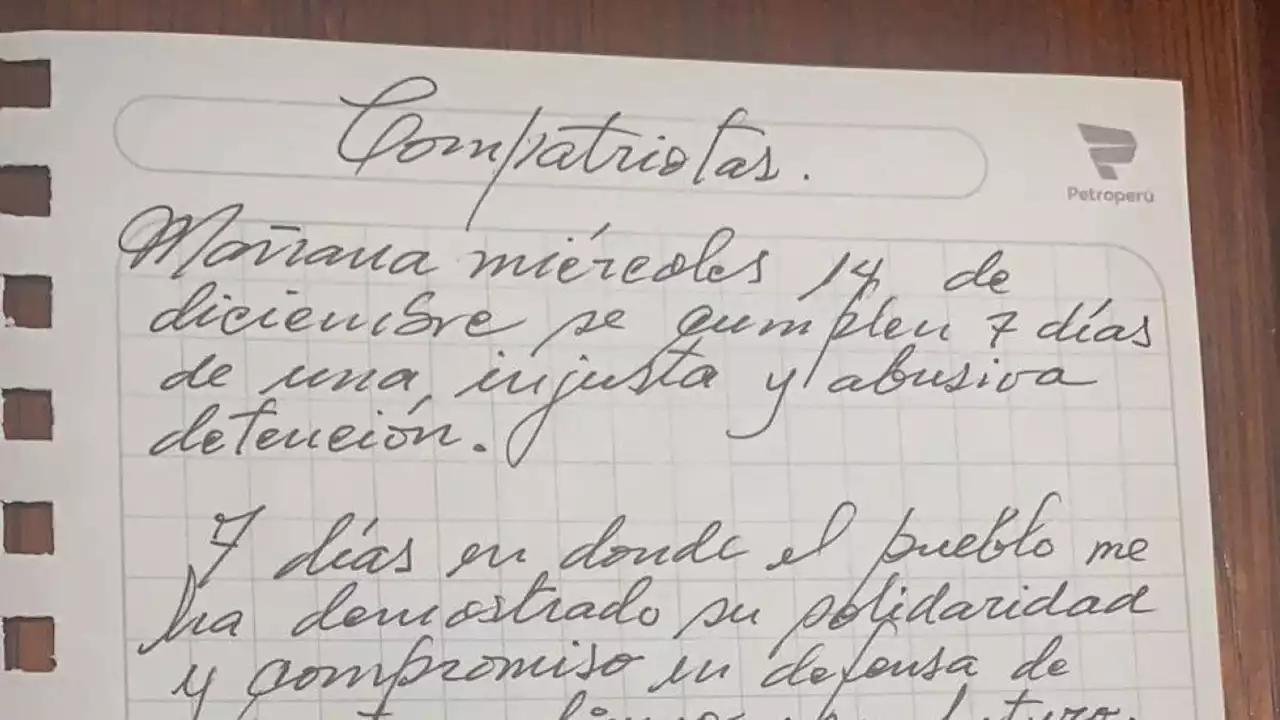 Compatriotas.
Petroperú
Mañana miércoles 14 de
diciembre se cumplen 7 días
de una injusta y abusiva
detención.
7 días en donde el pueblo me
ha demostrado su solidaridad
y compromiso en defensa de